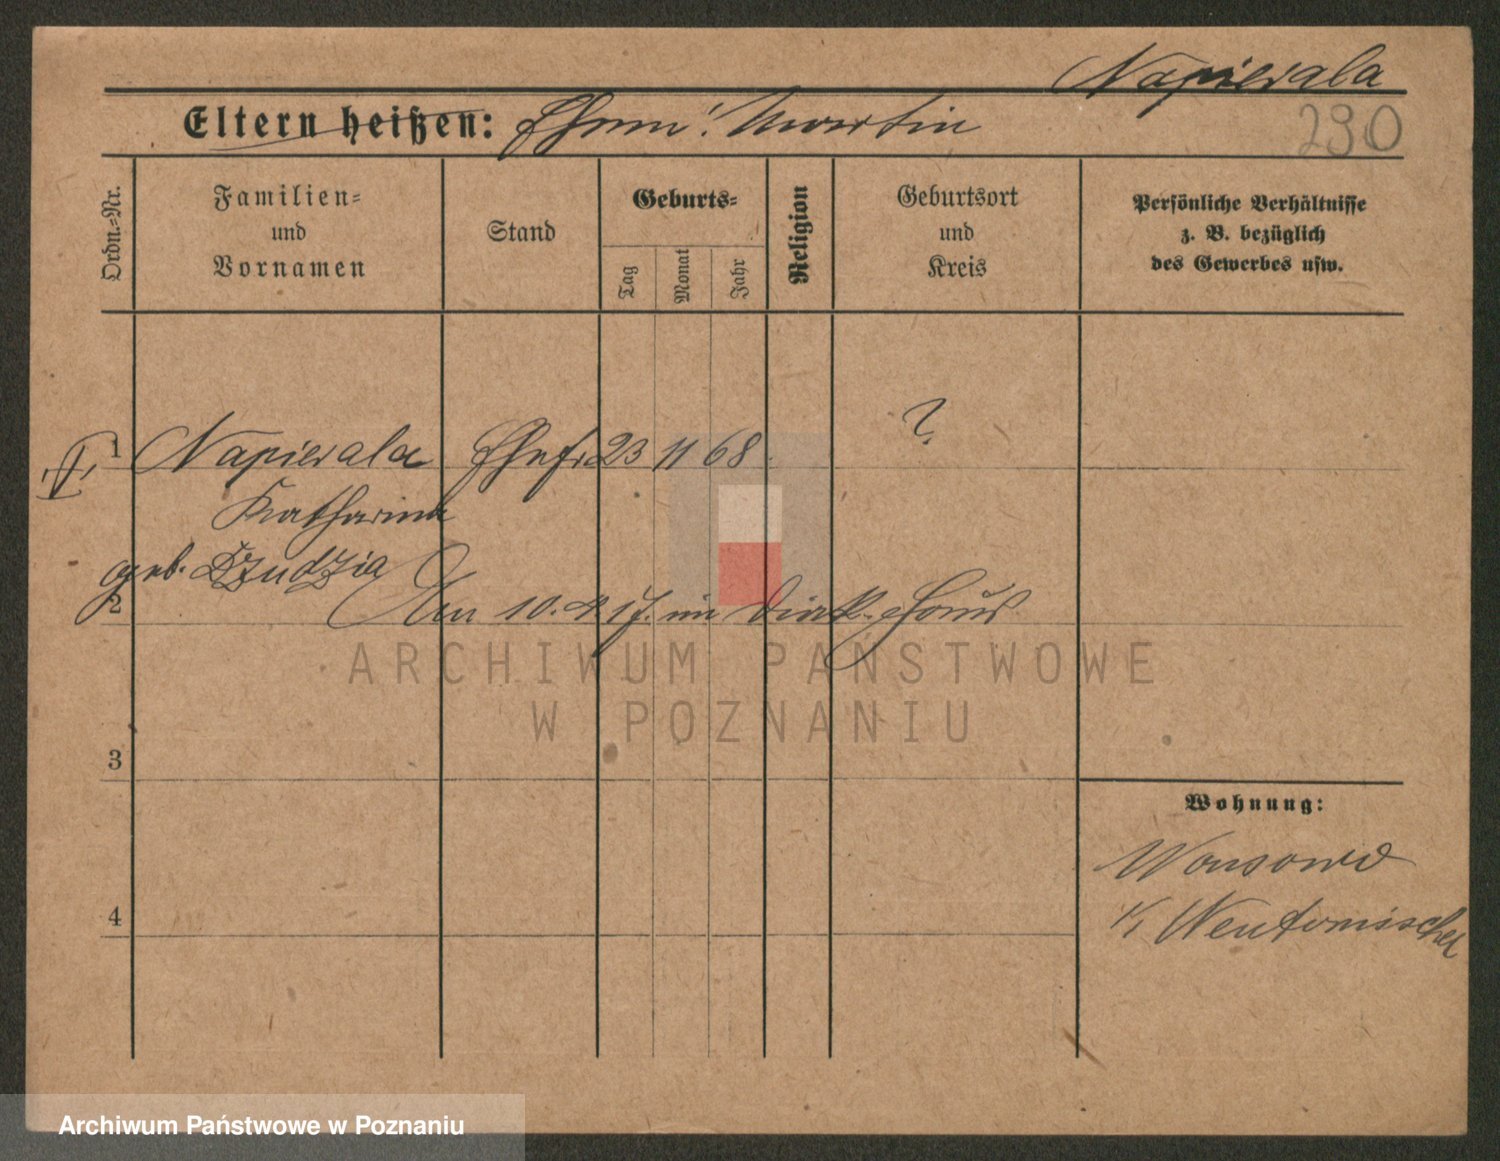 Napierala
Eltern heißen: Ehem: Martin
290
Ordn.-Nr.
Familien-
und
Vornamen
Stand
Geburts-
Tag
Monat
Jahr
Religion
Geburtsort
und
Kreis
Persönliche Verhältnisse
z. B. bezüglich
des Gewerbes usw.
?
1 Napierala Ehefr. 23 11 68
Katharina
geb. Dzudzia
2 Am 10. 4 17. im Diak. Haus
ARCHIWUM PAŃSTWOWE
W POZNANIU
3
Wohnung:
Wonsowo
4
K. Neutomischel
Archiwum Państwowe w Poznaniu